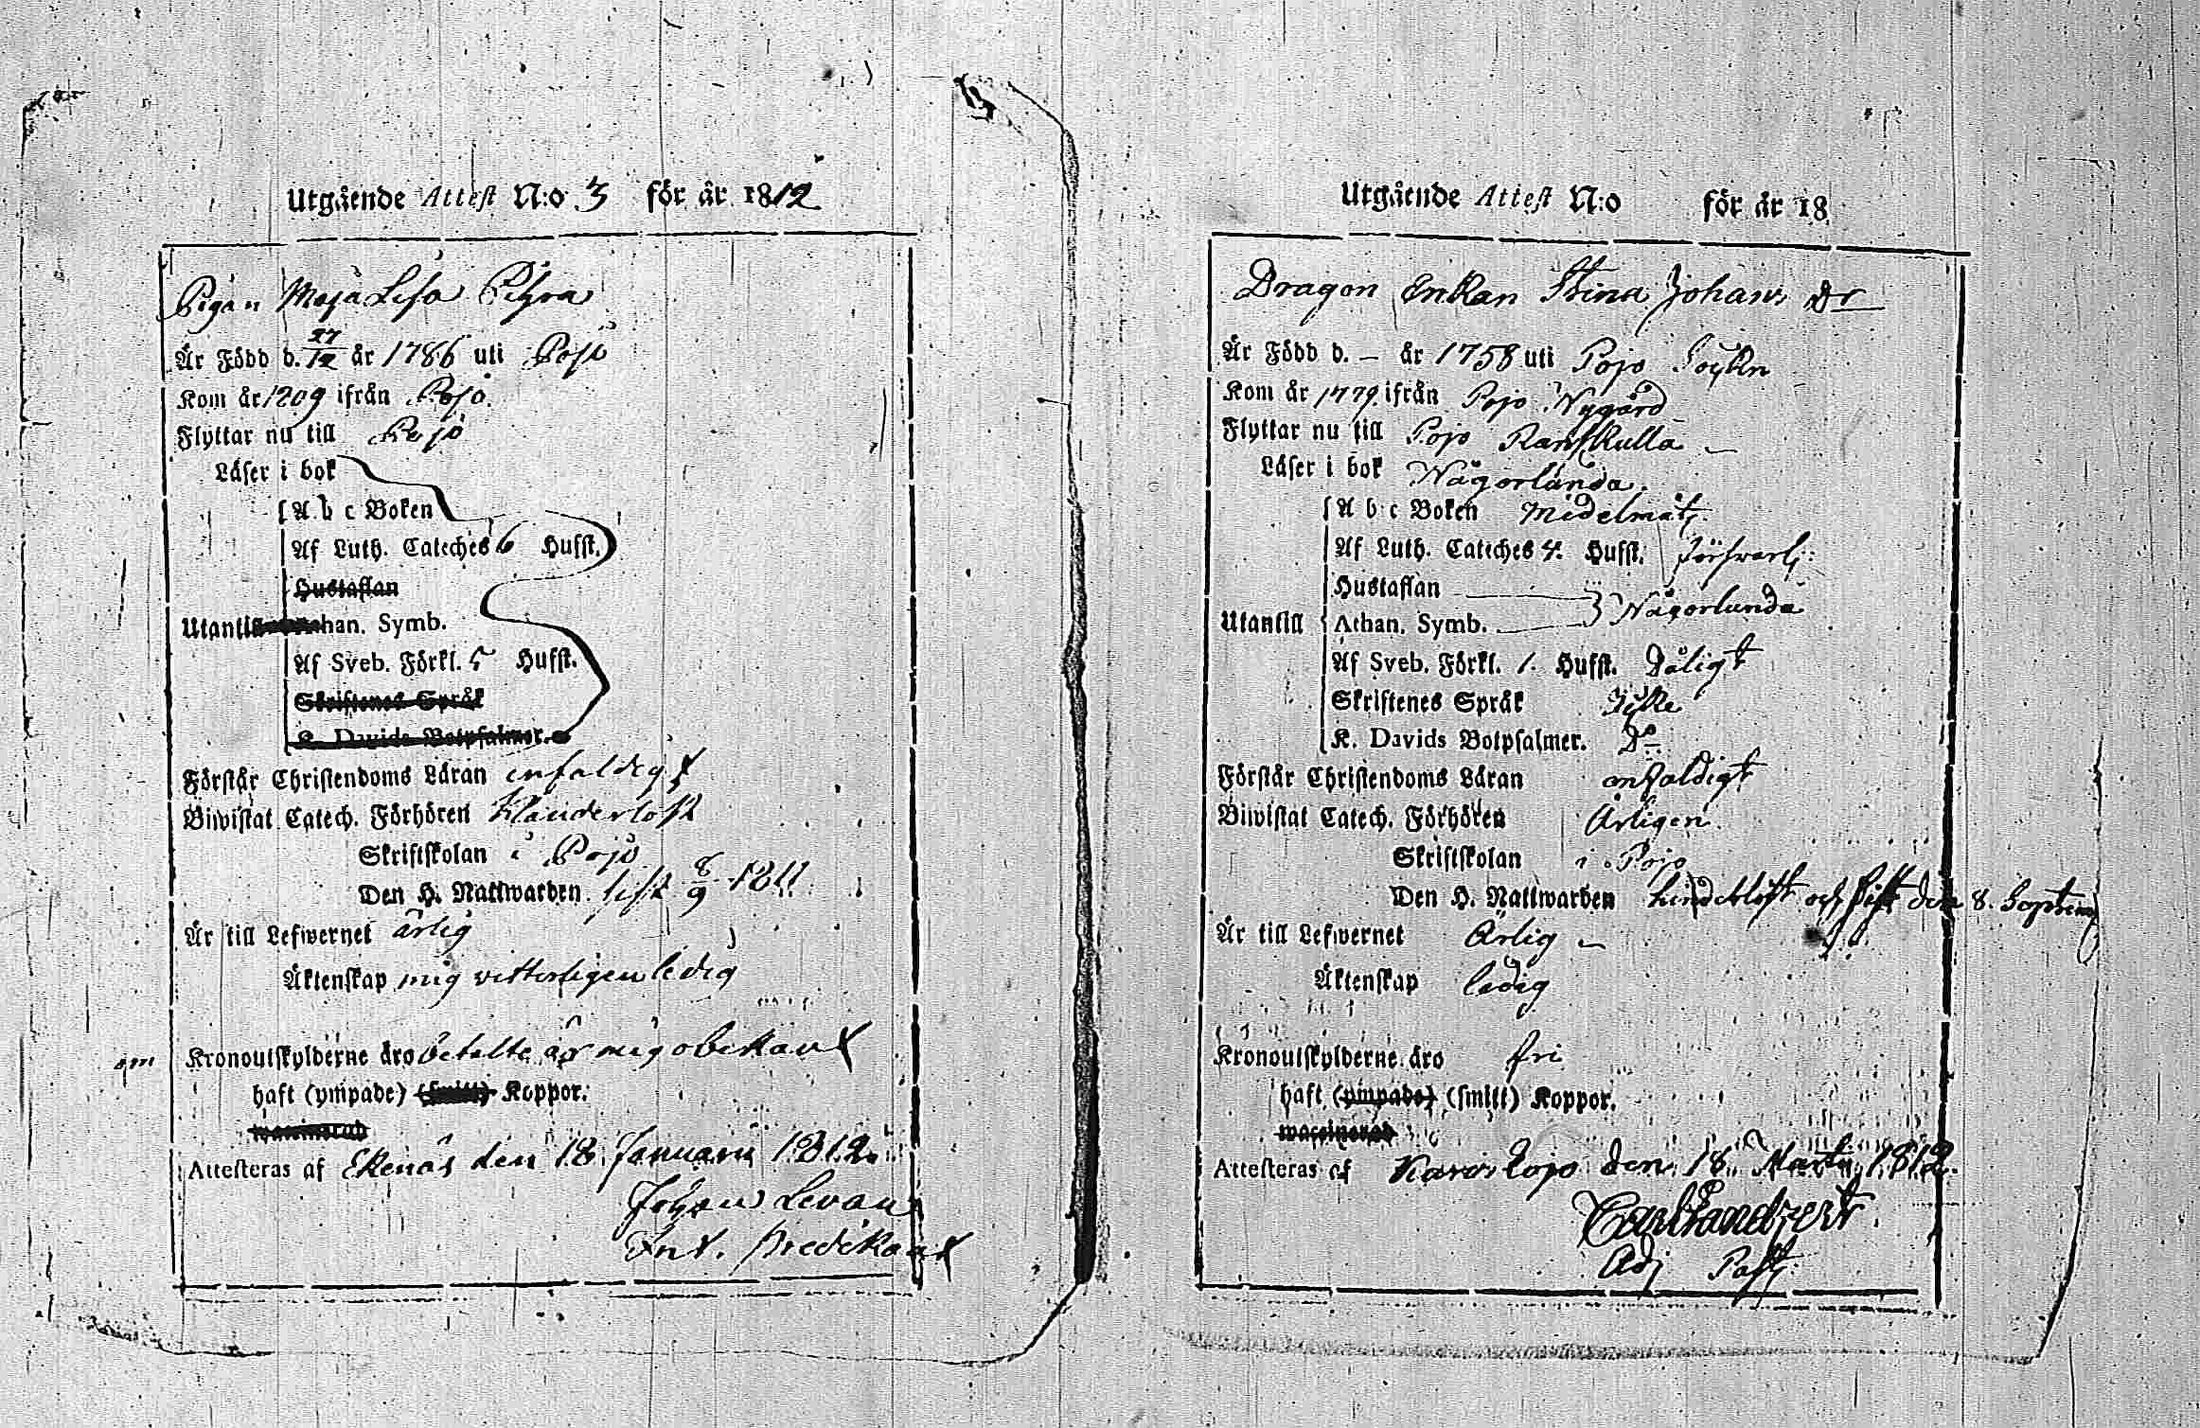 Utgående Attest N:o 3 för år 1812
Pigan Maja Lisa
Är Född d. 27/12 år 1786 uti Pojo
Kom år 1809 ifrån Pojo
Flyttar nu till Pojo
Läser i bok
A b c Boken
Af Luth. Cateches 6 Hufst.
Hustaflan
Utantill Athan. Symb.
Af Sveb. Förkl. 5 Hufst.
Skriftenes Språk
K. Davids Botpsalmer.
Förstår Christendoms Läran enfaldigt
Biwistat Catech. Förhören Klanderlöst
Skriftskolan i Pojo
Den H. Nattwarden sist 8/9 1811
Är till Lefwernet ärlig
Äktenskap mig vitterligen ledig
om Kronoutskylderne äro betalte är mig obekant
haft (ympade) (smitt) Koppor.
waccinerad
Attesteras af Ekenäs den 18 Januarii 1812.
Johan Levan
Int. Predikant
Utgående Attest N:o för år 18
Dragon Enkan Stina Johans Dr
Är Född d. – år 1758 uti Pojo Sockn
Kom år 1779 ifrån Pojo Nygård
Flyttar nu till Pojo Ranskulla
Läser i bok Någorlunda.
A b c Boken Medelmåt.
Af Luth. Cateches 4. Hufst. Försvarl:
Hustaflan
Utantill Athan. Symb. Någorlunda
Af Sveb. Förkl. 1. Hufst. Dåligt
Skriftenes Språk Icke
K. Davids Botpsalmer. Do
Förstår Christendoms Läran enfaldigt
Biwistat Catech. Förhören Årligen
Skriftskolan i Pojo
Den H. Nattwarden hinderlöst och sist den 8. Septemb
Är till Lefwernet Ärlig
Äktenskap ledig
Kronoutskylderne äro fri
haft (ympade) (smitt) Koppor.
waccinerad
Attesteras af Karislojo den 18 Martii 1812.
Adj Past.